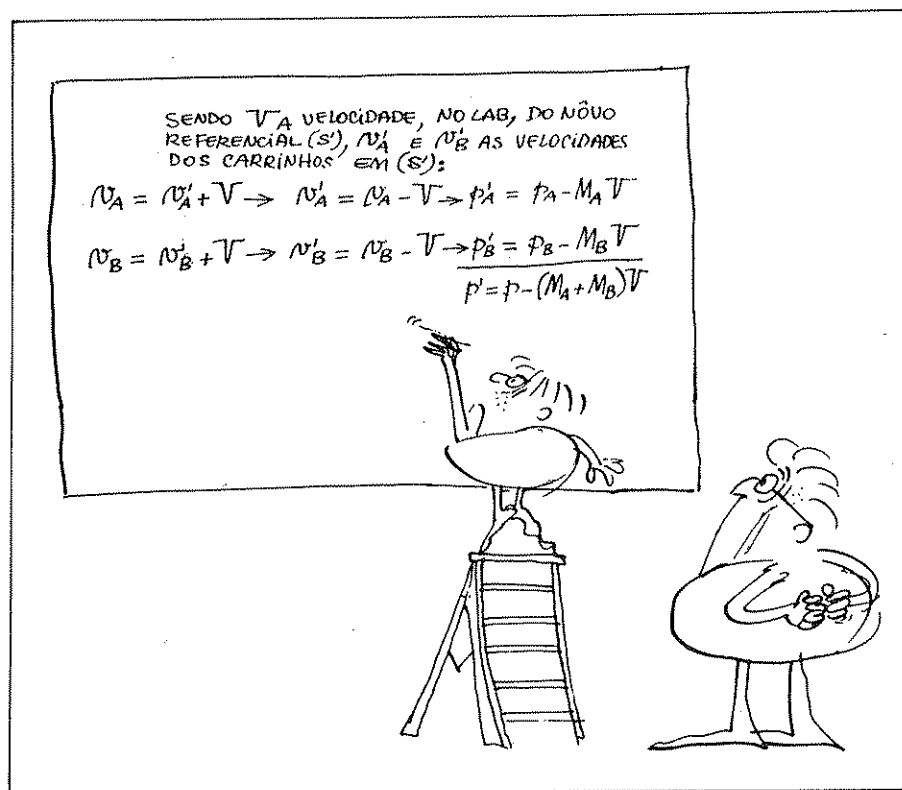 SENDO V A VELOCIDADE, NO LAB, DO NÔVO
REFERENCIAL (S'), v'_A E v'_B AS VELOCIDADES
DOS CARRINHOS EM (S'):
v_A = v'_A + V → v'_A = v_A - V → p'_A = p_A - M_A V
v_B = v'_B + V → v'_B = v_B - V → p'_B = p_B - M_B V
p' = p - (M_A + M_B) V